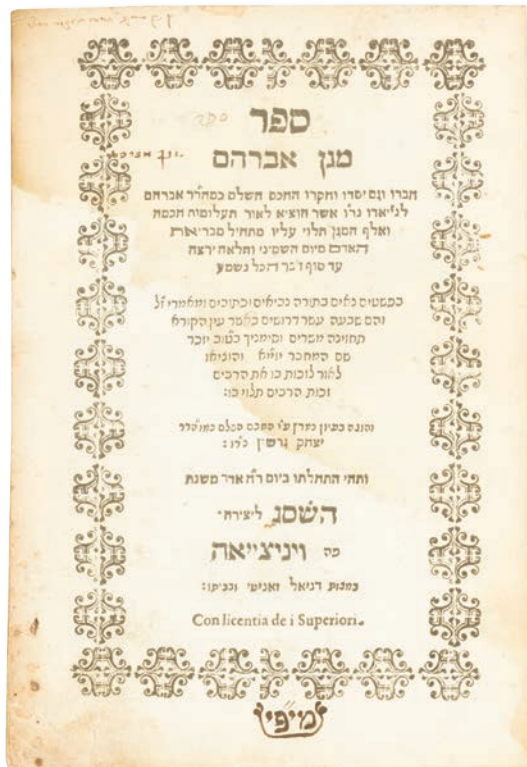 ספר
מגן אברהם
חברו וגם יסדו וחקרו החכם השלם כמה״רר אברהם
לניאדו נר״ו אשר הוציא לאור תעלומות חכמה
ואלף המגן תלוי עליו מתחיל מבריאות
האדם מיום השמיני והלאה ירצה
עד סוף דבר הכל נשמע
בפשטים נאים בתורה נביאים וכתובים ומאמרי ז״ל
והם שבעה עשר דרושים כאשר עין הקורא
תחזינה משרים וסימניך כטוב יזכר
שם המחבר יצ״ו והוציאו
לאור לזכות בו את הרבים
זכות הרבים תלוי בו:
והוגה בעיון נמרץ ע״י החכם השלם כמוה״רר
יצחק גרשון נר״ו:
ותהי התחלתו ביום ר״ח אדר משנת
השסג ליצירה
פה ויניציאה
במצות דניאל זאניטי וכביתו:
Con licentia de i Superiori.
מיפי